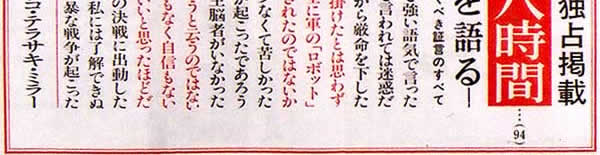 独占掲載
八時間
…(94)
を語る―
べき証言のすべて
強い語気で言った
言われては迷惑だ
から厳命を下した
掛けたとは思わず
に軍の「ロボット」
されたのではないか
なくて苦しかった
が起こつたであろう
主脳者がいなかった
うと云うのではない
もなく自信もない
いと思ったほどだ
の決戦に出動した
私には了解できぬ
暴な戦争が起こった
コ・テラサキ・ミラー